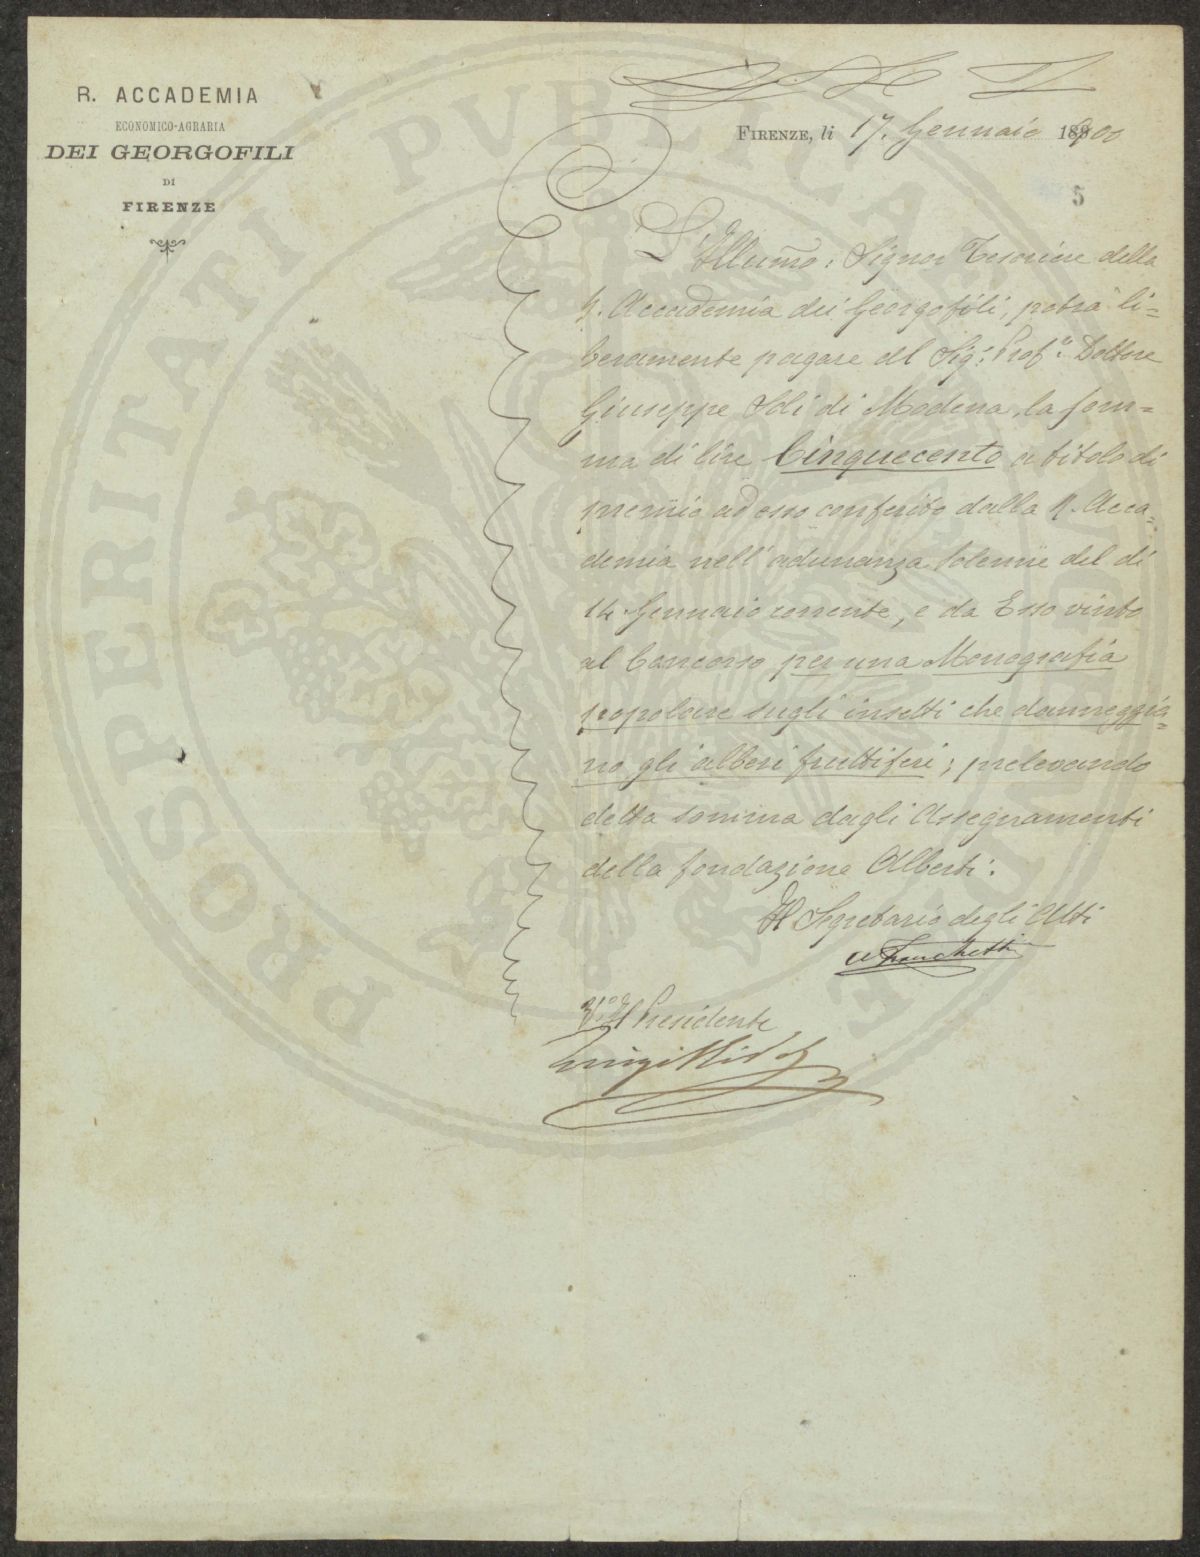 R. ACCADEMIA
ECONOMICO-AGRARIA
DEI GEORGOFILI
DI
FIRENZE
FIRENZE, li 17. Gennaio 1900
5
L'Illumo: Signor Tesoriere della
R. Accademia dei Georgofili, potrà li=
beramente pagare al Sig: Profe: Dottore
Giuseppe Soli di Modena, la som=
ma di lire Cinquecento a titolo di
premio ad esso conferito dalla R. Acca=
demia nell'adunanza solenne del dì
14 Gennaio corrente, e da Esso vinto
al Concorso per una Monografia
popolare sugli insetti che danneggia=
no gli alberi fruttiferi; prelevando
detta somma dagli Assegnamenti
della fondazione Alberti:
Il Segretario degli Atti
A Franchetti
Vo: Il Presidente
Luigi Ridolfi
PROSPERITATI PVBLICAE